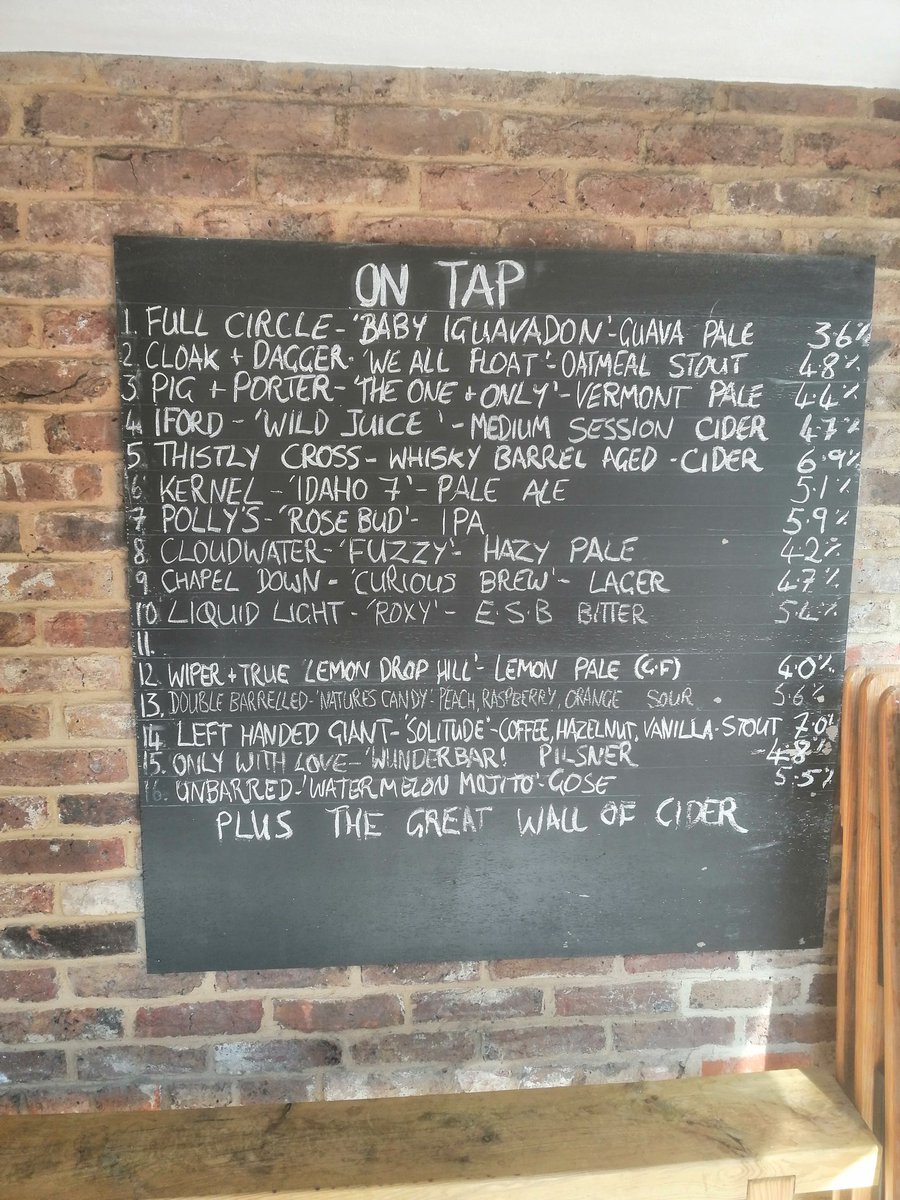 ON TAP
1. FULL CIRCLE - 'BABY IGUAVADON' - GUAVA PALE 3.6%
2. CLOAK + DAGGER - 'WE ALL FLOAT' - OATMEAL STOUT 4.8%
3. PIG + PORTER - 'THE ONE + ONLY' - VERMONT PALE 4.4%
4 IFORD - 'WILD JUICE' - MEDIUM SESSION CIDER 4.7%
5 THISTLY CROSS - WHISKY BARREL AGED - CIDER 6.9%
6 KERNEL - 'IDAHO 7' - PALE ALE 5.1%
7 POLLY'S - 'ROSE BUD' - IPA 5.9%
8 CLOUDWATER - 'FUZZY' - HAZY PALE 4.2%
9 CHAPEL DOWN - 'CURIOUS BREW' - LAGER 4.7%
10 LIQUID LIGHT - 'ROXY' - E.S.B BITTER 5.4%
11.
12. WIPER + TRUE 'LEMON DROP HILL' - LEMON PALE (G.F) 4.0%
13. DOUBLE BARRELLED - 'NATURES CANDY' - PEACH, RASPBERRY, ORANGE SOUR 5.6%
14. LEFT HANDED GIANT - 'SOLITUDE' - COFFEE, HAZELNUT, VANILLA - STOUT 7.0%
15. ONLY WITH LOVE - 'WUNDERBAR! PILSNER 4.8%
16. UNBARRED - 'WATERMELON MOJITO' - GOSE 5.5%
PLUS THE GREAT WALL OF CIDER